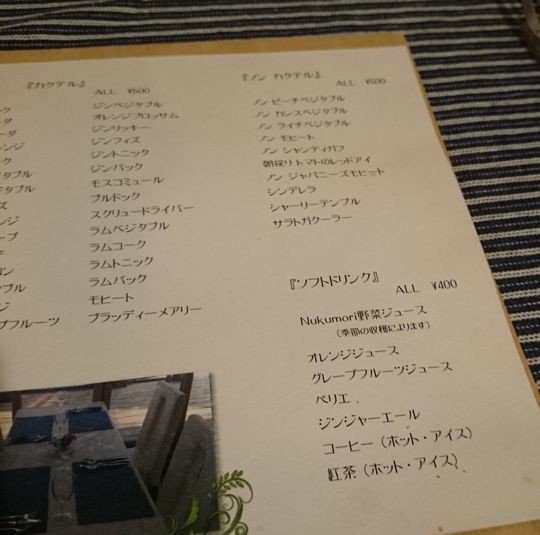 『カクテル』
ALL ¥500
ジンベジタブル
オレンジブロッサム
ジンリッキー
ジンフィズ
ジントニック
ジンバック
モスコミュール
ブルドック
スクリュードライバー
ラムベジタブル
ラムコーク
ラムトニック
ラムバック
モヒート
ブラッディーメアリー
『ノン カクテル』
ALL ¥500
ノン ピーチベジタブル
ノン カシスベジタブル
ノン ライチベジタブル
ノン モヒート
ノン シャンティガフ
朝採りトマトのレッドアイ
ノン ジャパニーズモヒート
シンデレラ
シャーリーテンプル
サラトガクーラー
『ソフトドリンク』
ALL ¥400
Nukumori野菜ジュース
(季節の収穫によります)
オレンジジュース
グレープフルーツジュース
ペリエ
ジンジャーエール
コーヒー（ホット・アイス）
紅茶（ホット・アイス）